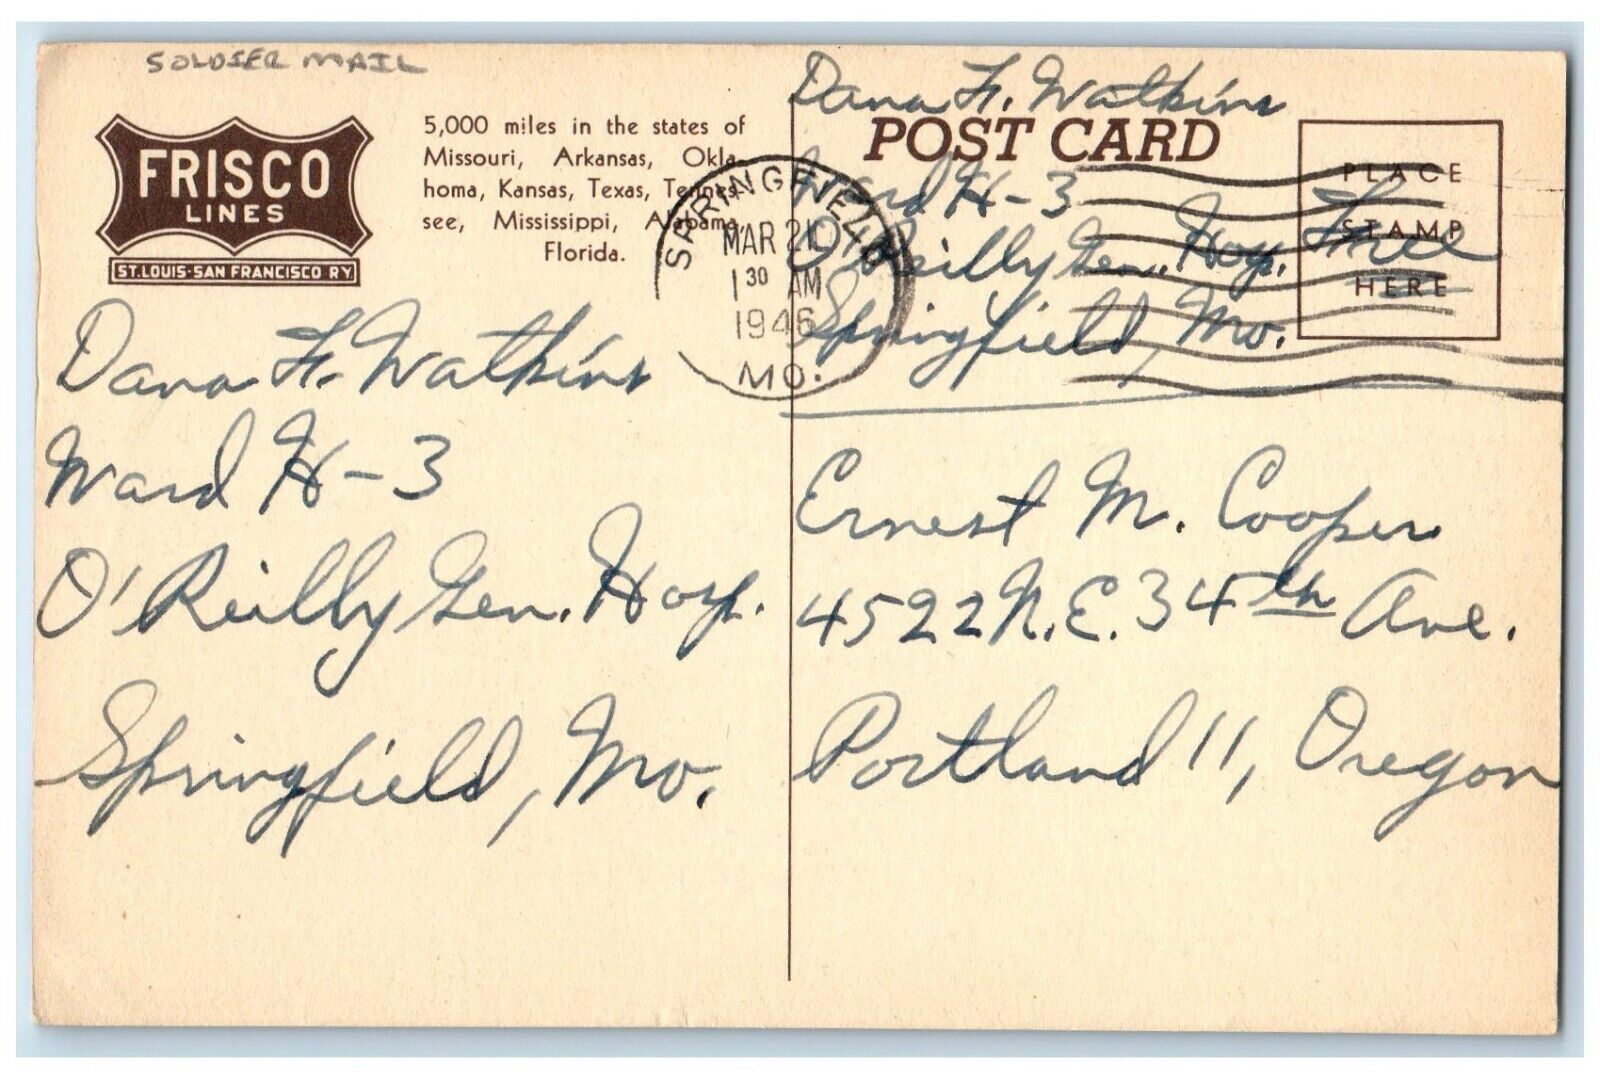 SOLDIER MAIL
FRISCO
LINES
ST.LOUIS-SAN FRANCISCO RY
5,000 miles in the states of
Missouri, Arkansas, Okla-
homa, Kansas, Texas, Tennes-
see, Mississippi, Alabama,
Florida.
Dana F. Watkins
Ward H-3
O'Reilly Gen. Hosp.
Springfield, Mo.
SPRINGFIELD
MAR 21
1 30 AM
1946
MO.
Dana F. Watkins
POST CARD
Ward H-3
O'Reilly Gen. Hosp.
Springfield, Mo.
PLACE
STAMP
HERE
Free
Ernest M. Cooper
4522 N.E. 34th Ave.
Portland 11, Oregon